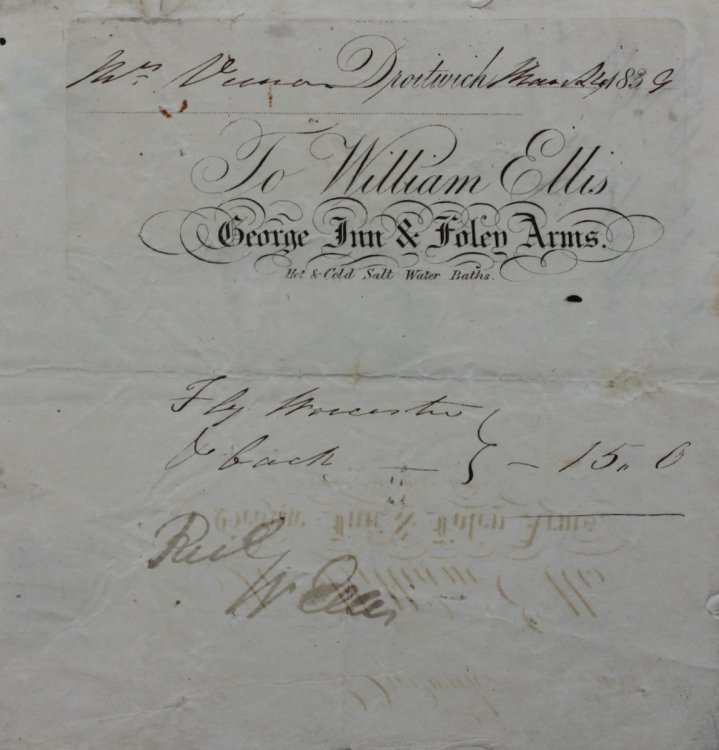 Mrs Vernon Droitwich March 1839
To William Ellis
George Inn & Foley Arms.
Hot & Cold Salt Water Baths.
Fly Worcester
& back — } — 15,, 0
W Ellis